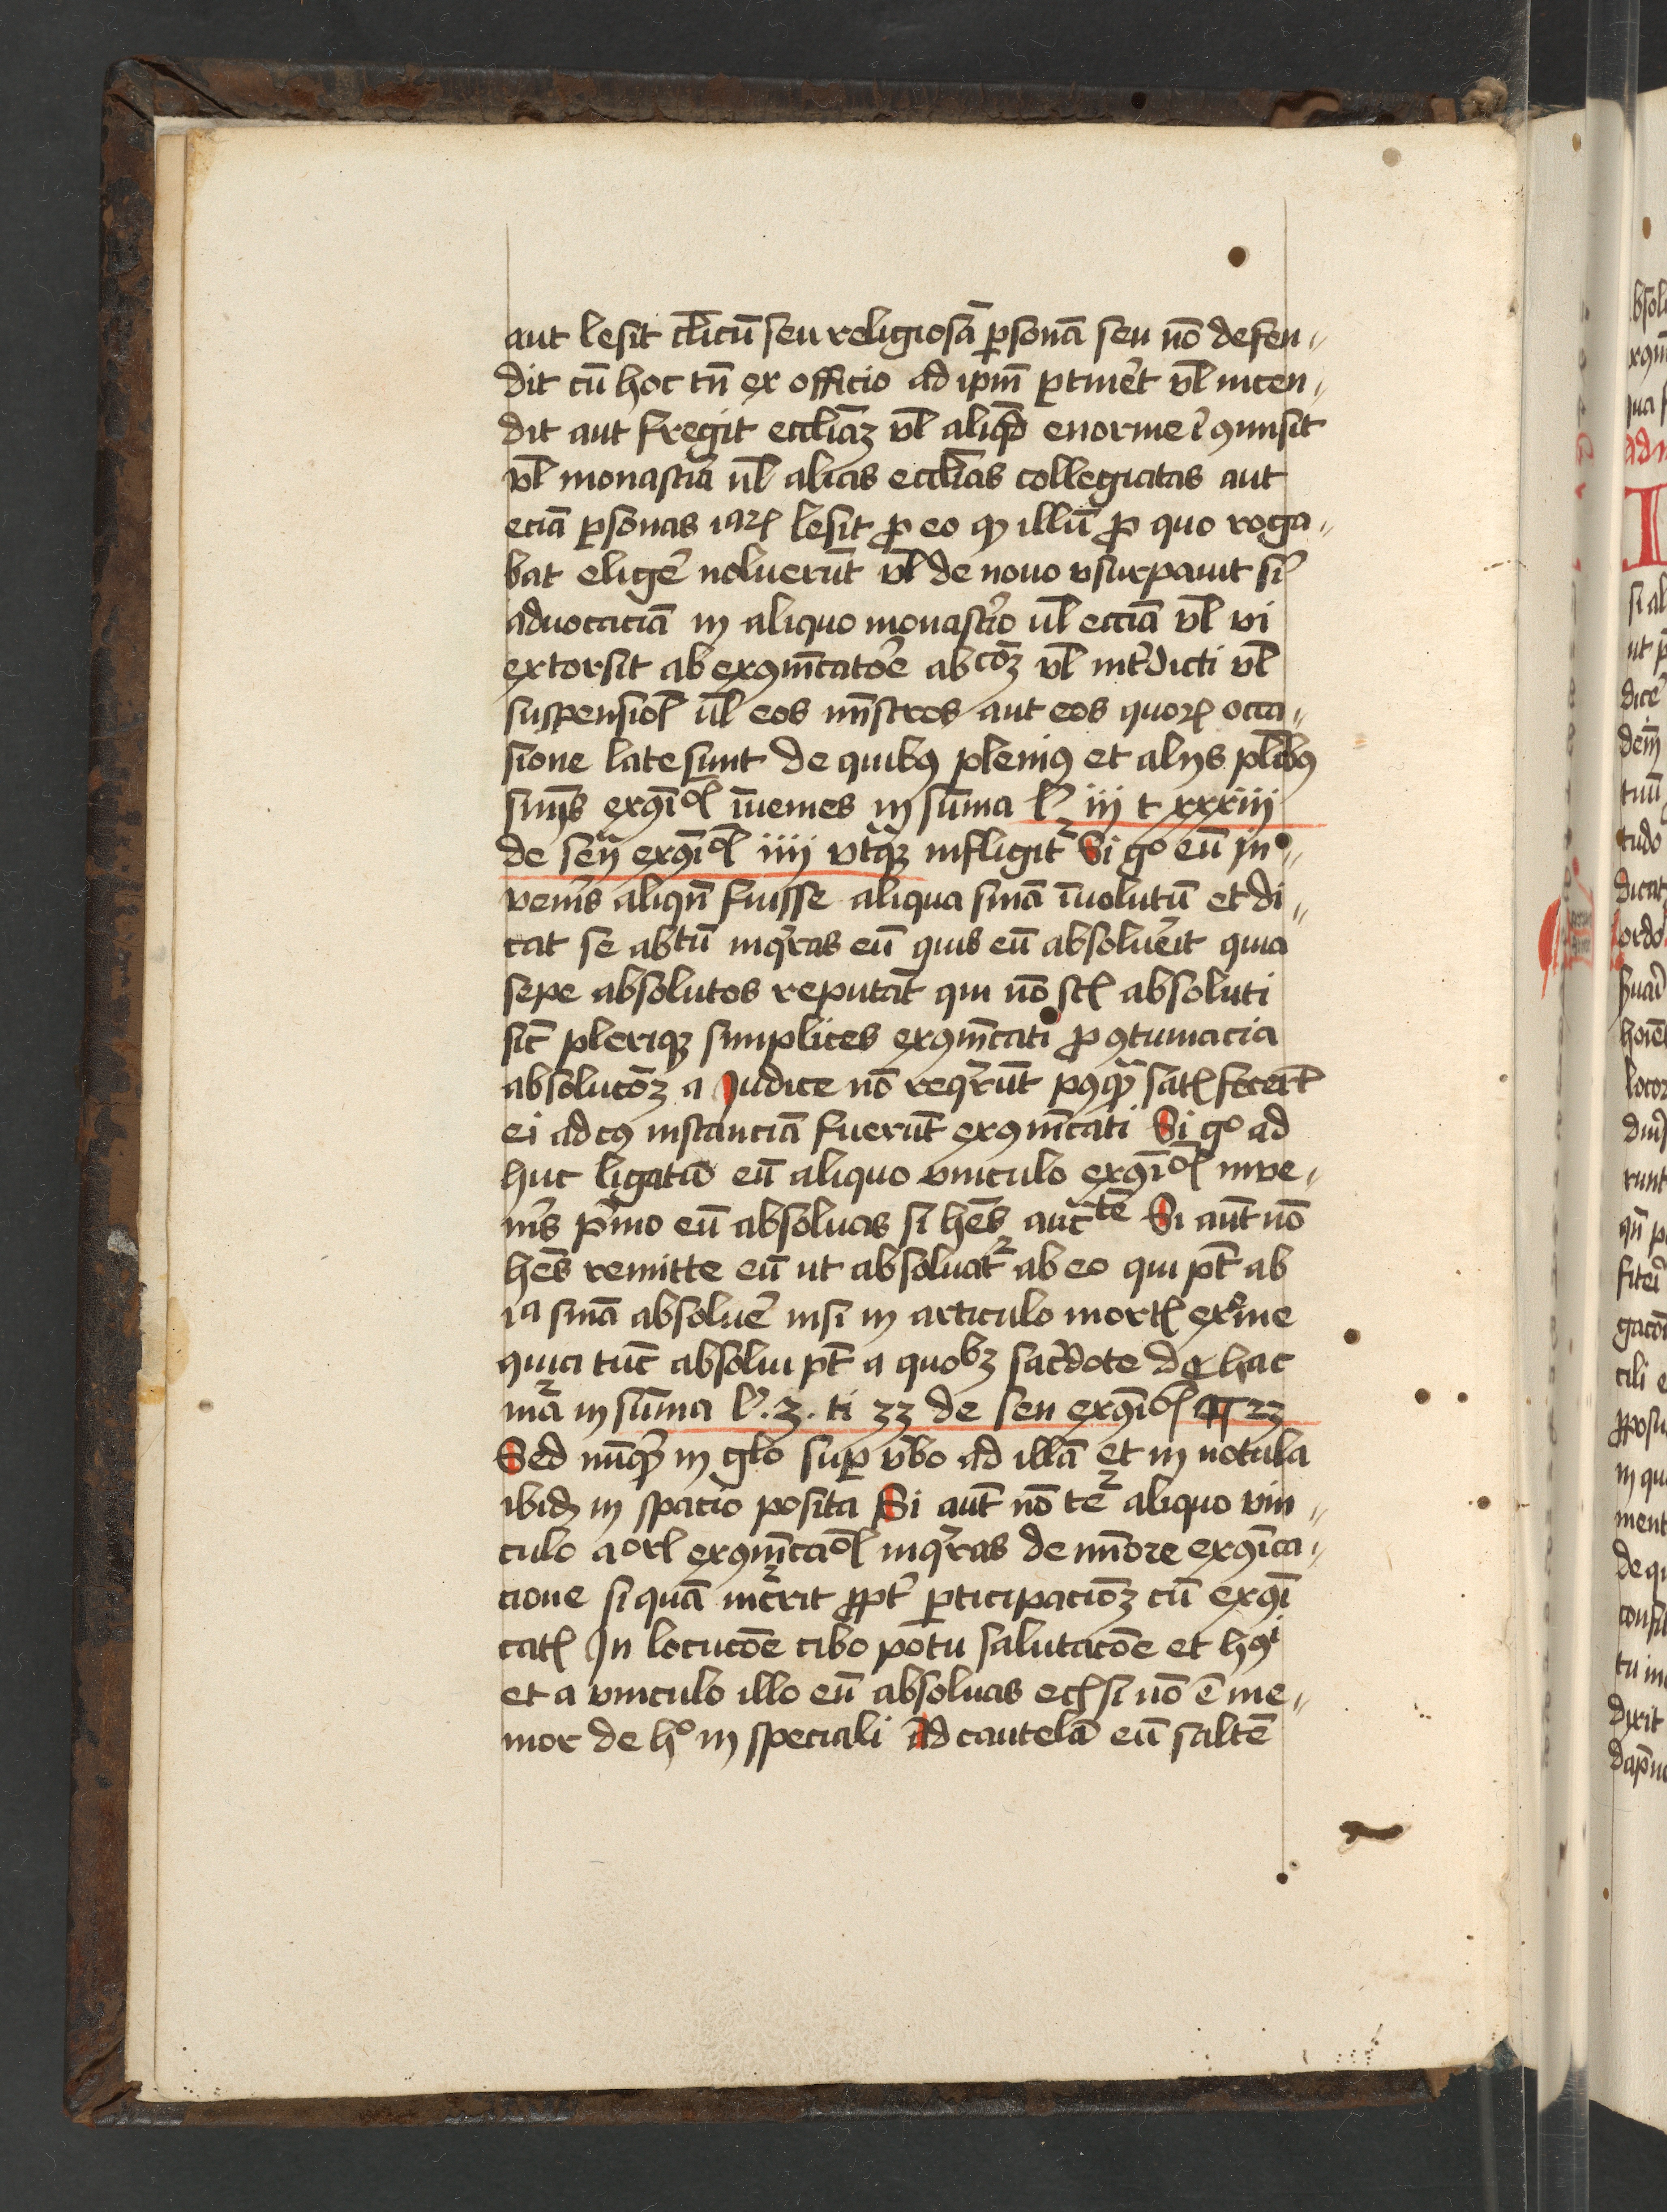 aut lesit cl̄icū seu religiosā ꝑsonā seu nō defen〃
dit cū hoc tn̄ ex officio ad ip̄m ꝑtinet̄ vl̄ incen〃
dit aut fregit eccliaꝫ vl̄ aliqd̄ enorme ī ꝯmisit
vl̄ monast̄ia ul̄ alias eccl̄ias collegiatas aut
eciā ꝑsonas lesit ꝓ eo ꝙ illū ꝓ quo roga〃
bat elige᷑ noluerūt vl̄ de nouo vsurpauit s̄i
aduocaciā in aliquo monast̄io ul̄ eccīa vl̄ vi
extorsit ab exꝯm̄catoē abcōꝫ vl̄ int̄dicti vl̄
suspensioī ul̄ eos mīstros aut eos quoꝝ occa〃
sione late sunt de quibꝰ pleniꝰ et alijs pl̄ibꝰ
exꝯi inuenies in sūma lᵒ iii t xxxiii
de sen̄ exꝯi iiii vt̄qꝫ infligit᷑ Si gᵒ eū in〃
ven̄is aliqn̄ fuisse aliqua sn̄ia īuolutū et di〃
cat se abtū inq̄ras eū quis eū absoluerit quia
sepe absolutos reputāt qui nō st̄ absoluti
sic̄ pleriqꝫ simplices exꝯm̄cati ꝓ ꝯtumacia
absolucōꝫ a Judice nō req̄rūt pꝰqꝫ satꝭ fecer̄t
ei ad cꝰ instanciā fuerūt exꝯm̄cati Si gᵒ ad
huc ligatū eū aliquo vinculo exꝯi inve〃
n̄is p̄mo eū absoluas si hēs auc̄te Si aut̄ nō
hēs remitte eū ut absoluat᷑ ab eo qui pt̄ ab
ia sn̄ia absolue᷑ nisi in articulo mortꝭ
quia tūc absolui pt̄ a quobꝫ sac̄dote de hac
mā in sūma lᵒ .3. ti 33 de sen exꝯi ¶ 23
Sed nūqꝫ in glo suꝑ v̄bo ad illā et in notula
ibid̄ in spacio posita Si aut̄ nō tet᷑ aliquo vin〃
culo aorī exꝯm̄caōī inq̄ras de mīore exꝯica〃
cione si quā inc̄rit ꝓpt᷑ ꝑticipacioꝫ cū exꝯi
catꝭ In locucōe cibo potu salutacōe et hꝰi
et a vinculo illo eū absoluas ec̄ si nō ē me〃
mor de hᵒ in speciali Ad cautelā eū saltē